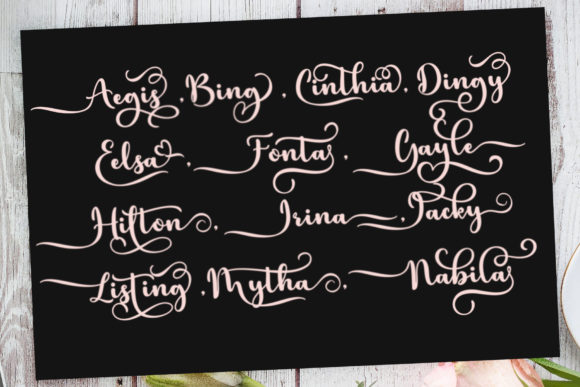 Aegis , Bing , Cinthia, Dingy
Eelsa , Fonta , Gayle
Hilton , Irina , Jacky
Listing , Mytha , Nabila